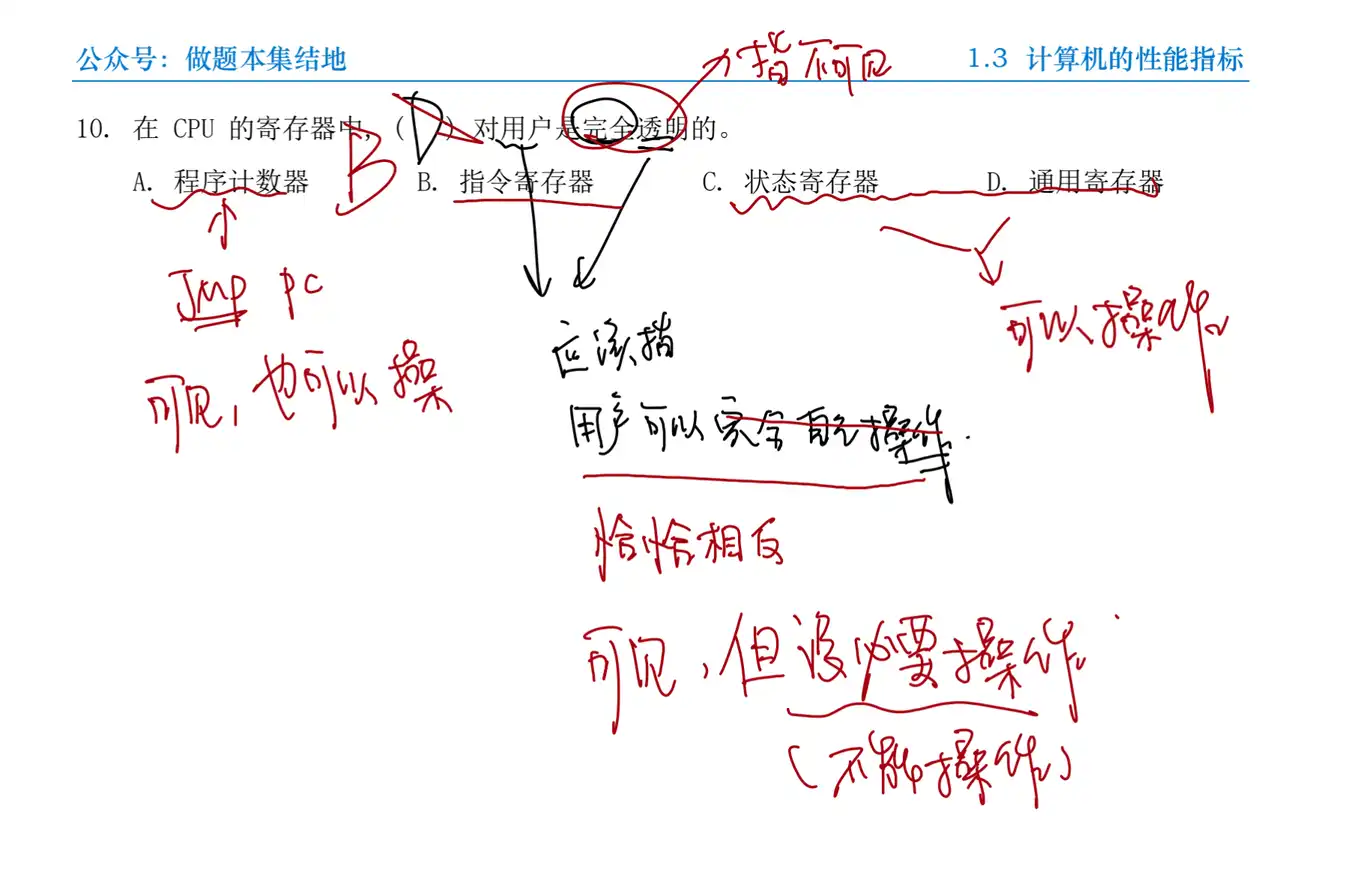 公众号：做题本集结地
1.3 计算机的性能指标
指不可见
10. 在 CPU 的寄存器中，( D ) 对用户是完全透明的。
B
A. 程序计数器 B. 指令寄存器 C. 状态寄存器 D. 通用寄存器
Jmp PC
可见，也可以操
应该指
用户可以完全自己操作.
可以操作.
恰恰相反
可见，但没必要操作.
(不能操作)